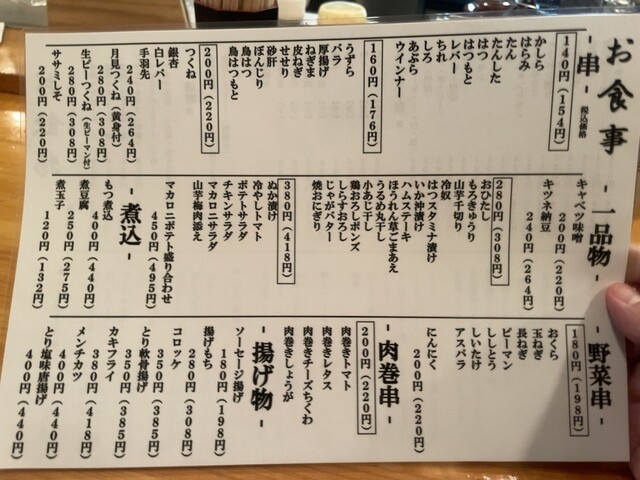 お食事
- 串 -
税込価格
140円(154円)
かしら
はらみ
たん
たんした
はつ
はつもと
レバー
ちれ
しろ
あぶら
ウインナー
160円(176円)
うずら
バラ
厚揚げ
ねぎま
皮ねぎ
せせり
砂肝
ぼんじり
鳥はつ
鳥はつもと
200円(220円)
つくね
銀杏
白レバー
手羽先
月見つくね(黄身付)
240円(264円)
生ピーつくね(生ピーマン付)
280円(308円)
ササミしそ
200円(220円)
- 一品物 -
キャベツ味噌
200円(220円)
キツネ納豆
240円(264円)
280円(308円)
おひたし
もろきゅうり
山芋千切り
冷奴
はつスタミナ漬け
いか沖漬け
ハムステーキ
ほうれん草ごまあえ
うるめ丸干し
小あじ干し
鶏おろしポンズ
しらすおろし
じゃがバター
焼おにぎり
380円(418円)
ぬか漬け
冷やしトマト
ポテトサラダ
チキンサラダ
マカロニサラダ
山芋梅肉添え
マカロニポテト盛り合わせ
450円(495円)
- 煮込 -
もつ煮込
400円(440円)
煮豆腐
250円(275円)
煮玉子
120円(132円)
- 野菜串 -
180円(198円)
おくら
玉ねぎ
長ねぎ
ピーマン
ししとう
しいたけ
アスパラ
にんにく
200円(220円)
- 肉巻串 -
200円(220円)
肉巻きトマト
肉巻きレタス
肉巻きチーズちくわ
肉巻きしょうが
- 揚げ物 -
ソーセージ揚げ
180円(198円)
揚げもち
280円(308円)
コロッケ
350円(385円)
とり軟骨揚げ
350円(385円)
カキフライ
380円(418円)
メンチカツ
400円(440円)
とり塩味唐揚げ
400円(440円)